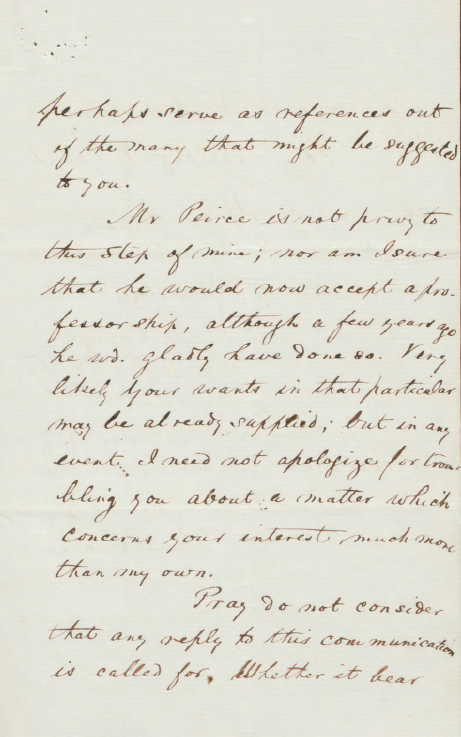 perhaps serve as references out
of the many that might be suggested
to you.
Mr Peirce is not privy to
this step of mine; nor am I sure
that he would now accept a pro-
fessorship, although a few years ago
he wd. gladly have done so. Very
likely your wants in that particular
may be already supplied; but in any
event I need not apologize for trou-
bling you about a matter which
concerns your interest much more
than my own.
Pray do not consider
that any reply to this communication
is called for. Whether it bear